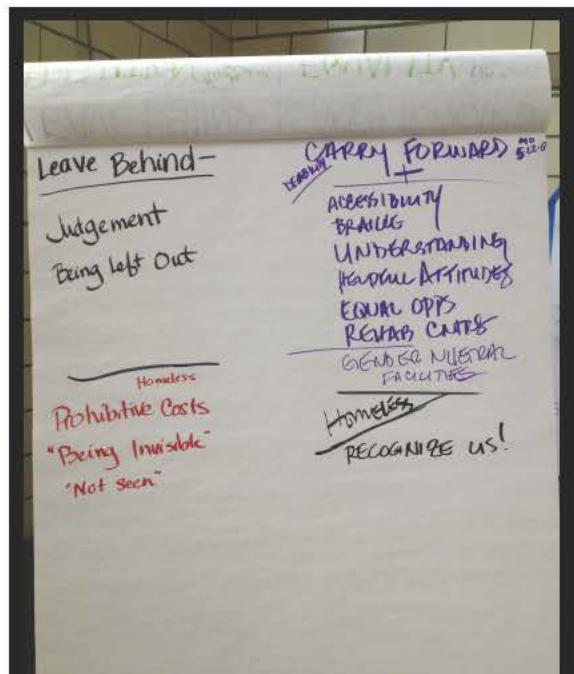 Leave Behind—
Judgement
Being Left Out
Homeless
Prohibitive Costs
"Being Invisible"
"Not Seen"
CARRY FORWARD
+
ACCESSIBILITY
BRAILLE
UNDERSTANDING
HELPFUL ATTITUDES
EQUAL OPPS
REHAB CNTRS
GENDER NUETRAL
FACILITIES
HOMELESS
RECOGNIZE US!